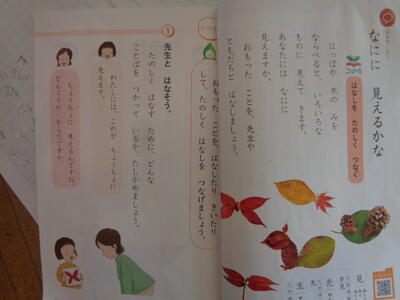 なにに 見えるかな
はなしを たのしく つなぐ
はっぱや 木の みを
ならべると、いろいろな
ものに 見えて きます。
あなたには なにに
見えますか。
おもった ことを、先生や
ともだちと はなしましょう。
おもった ことを はなしたり きいたり
して、たのしく はなしを つなげましょう。
①
先生と はなそう。
たのしく はなす ために、どんな
ことばを つかって いるか、たしかめましょう。
わたしには、これが ちょうちょに
見えます。
ちょうちょに 見えるんですね。
どんぐりが からだですか。
見
先
生